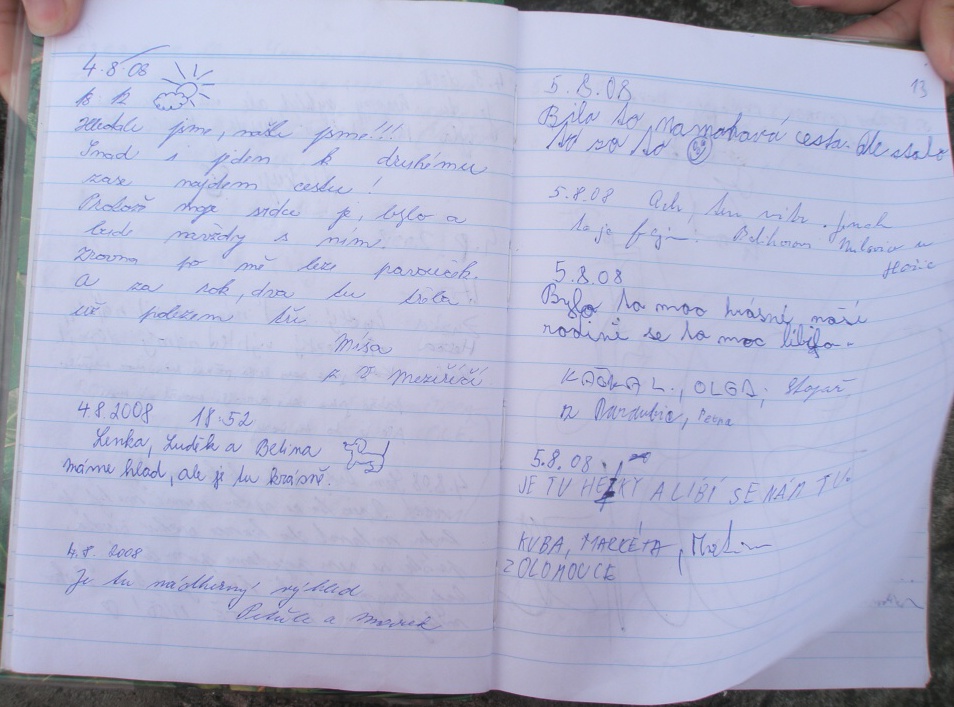 4.8.08
Hledali jsme, našli jsme!!!
Snad i jdem k druhému
zase najdem cestu!
Protože moje srdce je, bylo a
bude navždy s ním.
Zrovna po mě leze pavouček.
A za rok, dva tu třeba
už polezem tři
Míša
z V. Meziříčí
4.8.2008 18:52
Lenka, Luděk a Belina
máme hlad, ale je tu krásně.
4.8. 2008
Je tu nádherný výhled
a
13
5.8.08
Bjla to namahavá cesta. Ale stálo
to za to
5.8.08 Ach, ten vítr. Jinak
to je fajn.
5.8.08
Bylo to moc krásné naší
rodině se to moc líbilo.
KAČKA L., OLGA,
z Pardubic,
5.8.08
JE TU HEZKY A LÍBÍ SE NÁM TU.
KUBA, MARKÉTA, Martin
Z OLOMOUCE